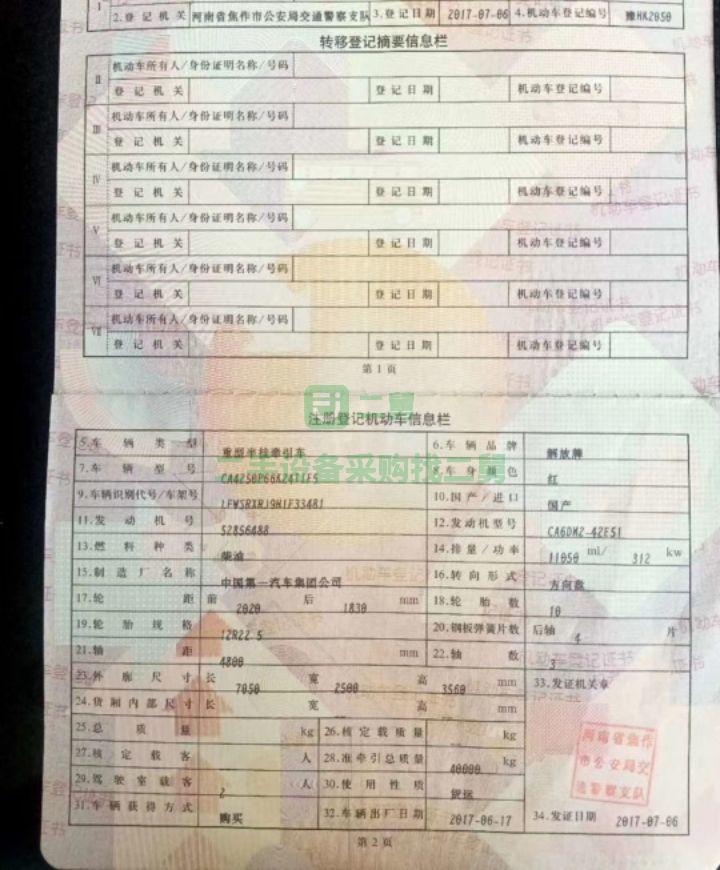 I 2.登记机关 河南省焦作市公安局交通警察支队 3.登记日期 2017-07-06 4.机动车登记编号 豫HK2050
转移登记摘要信息栏
II 机动车所有人/身份证明名称/号码
登记机关 登记日期 机动车登记编号
III 机动车所有人/身份证明名称/号码
登记机关 登记日期 机动车登记编号
IV 机动车所有人/身份证明名称/号码
登记机关 登记日期 机动车登记编号
V 机动车所有人/身份证明名称/号码
登记机关 登记日期 机动车登记编号
VI 机动车所有人/身份证明名称/号码
登记机关 登记日期 机动车登记编号
VII 机动车所有人/身份证明名称/号码
登记机关 登记日期 机动车登记编号
第1页
二舅
注册登记机动车信息栏
二手设备采购找二舅
5.车辆类型 重型半挂牵引车 6.车辆品牌 解放牌
7.车辆型号 CA4250P66K24T1E5 8.车身颜色 红
9.车辆识别代号/车架号 LFWSRXRJ9H1F33481 10.国产/进口 国产
11.发动机号 52856488 12.发动机型号 CA6DM2-42E51
13.燃料种类 柴油 14.排量/功率 11050 ml/ 312 kw
15.制造厂名称 中国第一汽车集团公司 16.转向形式 方向盘
17.轮距 前 2020 后 1830 mm 18.轮胎数 10
19.轮胎规格 12R22.5 20.钢板弹簧片数 后轴 4 片
21.轴距 4800 mm 22.轴数 3
23.外廓尺寸 长 7050 宽 2500 高 3560 mm 33.发证机关章
24.货厢内部尺寸 长 宽 高 mm
25.总质量 kg 26.核定载质量 kg
27.核定载客 人 28.准牵引总质量 40000 kg
29.驾驶室载客 2 人 30.使用性质 货运
31.车辆获得方式 购买 32.车辆出厂日期 2017-06-17 34.发证日期 2017-07-06
河南省焦作
市公安局交
通警察支队
第2页